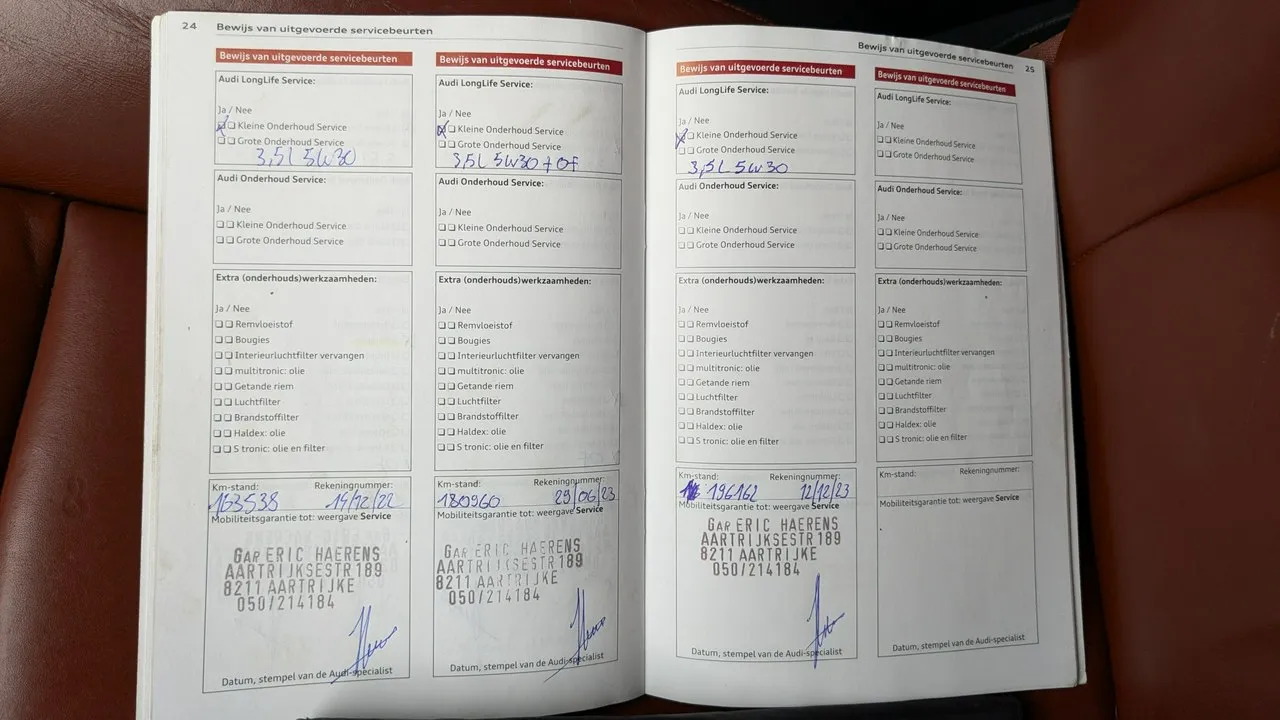 24 Bewijs van uitgevoerde servicebeurten
Bewijs van uitgevoerde servicebeurten
Audi LongLife Service:
Ja / Nee
Kleine Onderhoud Service
Grote Onderhoud Service
3,5L 5W30
Audi Onderhoud Service:
Ja / Nee
Kleine Onderhoud Service
Grote Onderhoud Service
Extra (onderhouds)werkzaamheden:
Ja / Nee
Remvloeistof
Bougies
Interieurluchtfilter vervangen
multitronic: olie
Getande riem
Luchtfilter
Brandstoffilter
Haldex: olie
S tronic: olie en filter
Km-stand: Rekeningnummer:
163538 14/12/22
Mobiliteitsgarantie tot: weergave Service
GAR ERIC HAERENS
AARTRIJKSESTR 189
8211 AARTRIJKE
050/214184
Datum, stempel van de Audi-specialist
Bewijs van uitgevoerde servicebeurten
Audi LongLife Service:
Ja / Nee
Kleine Onderhoud Service
Grote Onderhoud Service
3,5L 5W30 + OF
Audi Onderhoud Service:
Ja / Nee
Kleine Onderhoud Service
Grote Onderhoud Service
Extra (onderhouds)werkzaamheden:
Ja / Nee
Remvloeistof
Bougies
Interieurluchtfilter vervangen
multitronic: olie
Getande riem
Luchtfilter
Brandstoffilter
Haldex: olie
S tronic: olie en filter
Km-stand: Rekeningnummer:
180960 29/06/23
Mobiliteitsgarantie tot: weergave Service
GAR ERIC HAERENS
AARTRIJKSESTR 189
8211 AARTRIJKE
050/214184
Datum, stempel van de Audi-specialist
Bewijs van uitgevoerde servicebeurten 25
Bewijs van uitgevoerde servicebeurten
Audi LongLife Service:
Ja / Nee
Kleine Onderhoud Service
Grote Onderhoud Service
3,5L 5W30
Audi Onderhoud Service:
Ja / Nee
Kleine Onderhoud Service
Grote Onderhoud Service
Extra (onderhouds)werkzaamheden:
Ja / Nee
Remvloeistof
Bougies
Interieurluchtfilter vervangen
multitronic: olie
Getande riem
Luchtfilter
Brandstoffilter
Haldex: olie
S tronic: olie en filter
Km-stand: Rekeningnummer:
196162 12/12/23
Mobiliteitsgarantie tot: weergave Service
GAR ERIC HAERENS
AARTRIJKSESTR 189
8211 AARTRIJKE
050/214184
Datum, stempel van de Audi-specialist
Bewijs van uitgevoerde servicebeurten
Audi LongLife Service:
Ja / Nee
Kleine Onderhoud Service
Grote Onderhoud Service
Audi Onderhoud Service:
Ja / Nee
Kleine Onderhoud Service
Grote Onderhoud Service
Extra (onderhouds)werkzaamheden:
Ja / Nee
Remvloeistof
Bougies
Interieurluchtfilter vervangen
multitronic: olie
Getande riem
Luchtfilter
Brandstoffilter
Haldex: olie
S tronic: olie en filter
Km-stand: Rekeningnummer:
Mobiliteitsgarantie tot: weergave Service
Datum, stempel van de Audi-specialist